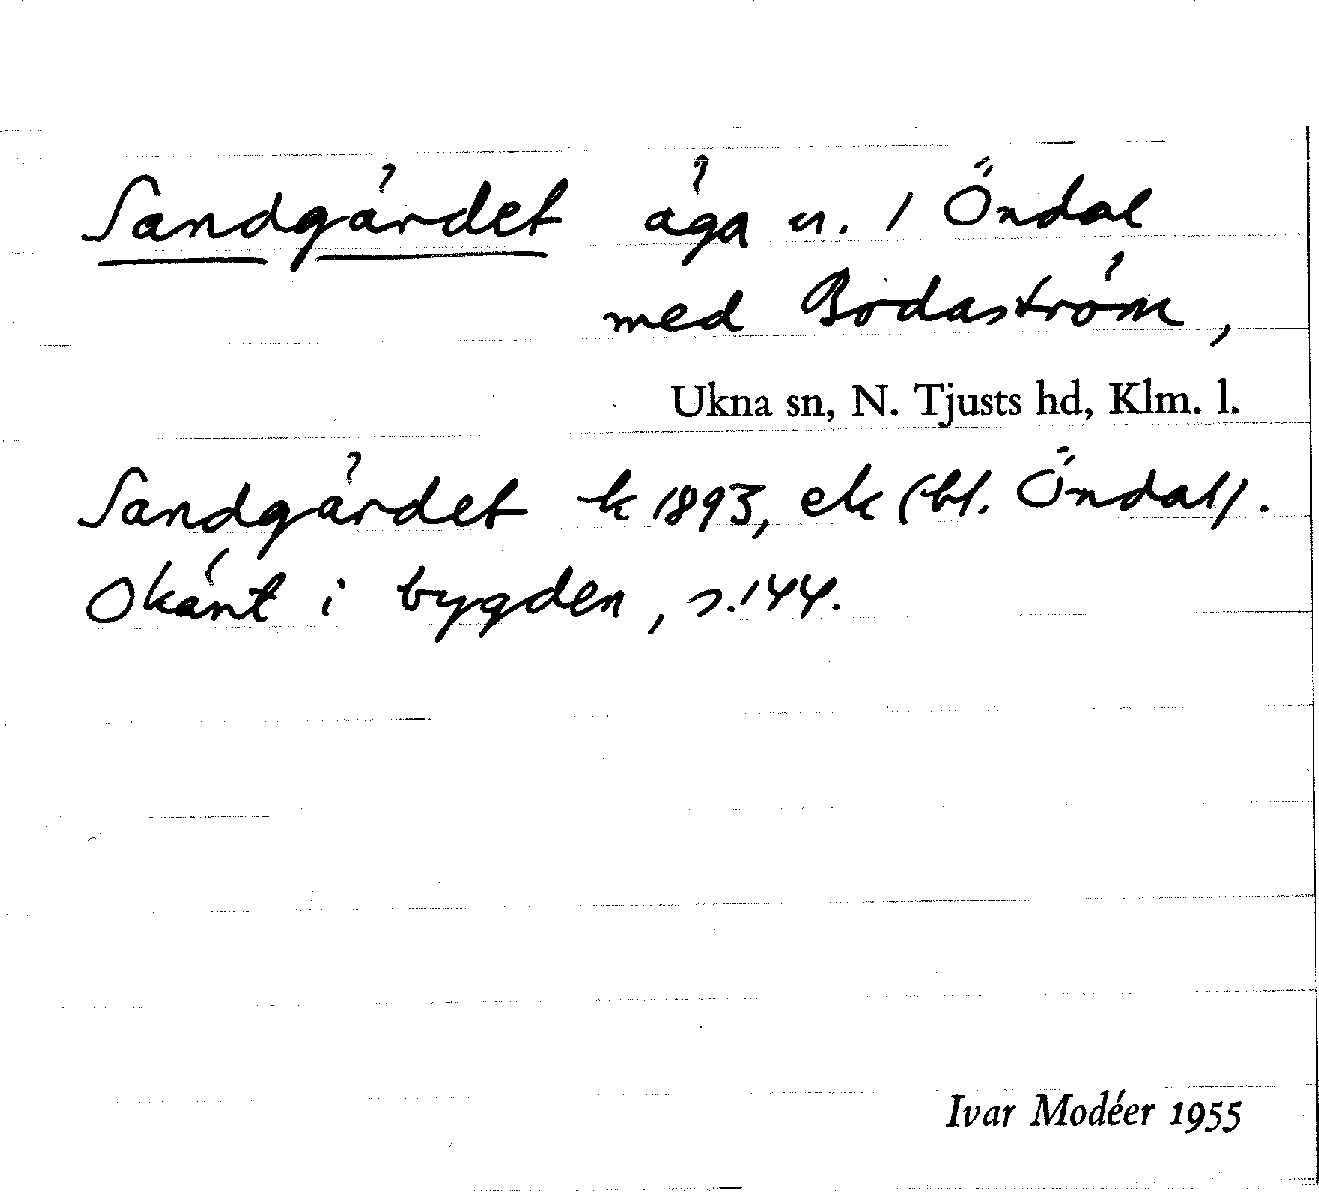 Sandgärdet äga u. 1 Öndal
med Bodaström,
Ukna sn, N. Tjusts hd, Klm. l.
Sandgärdet k 1893, ek (bl. Öndal).
Okänt i bygden, s. 144.
Ivar Modéer 1955